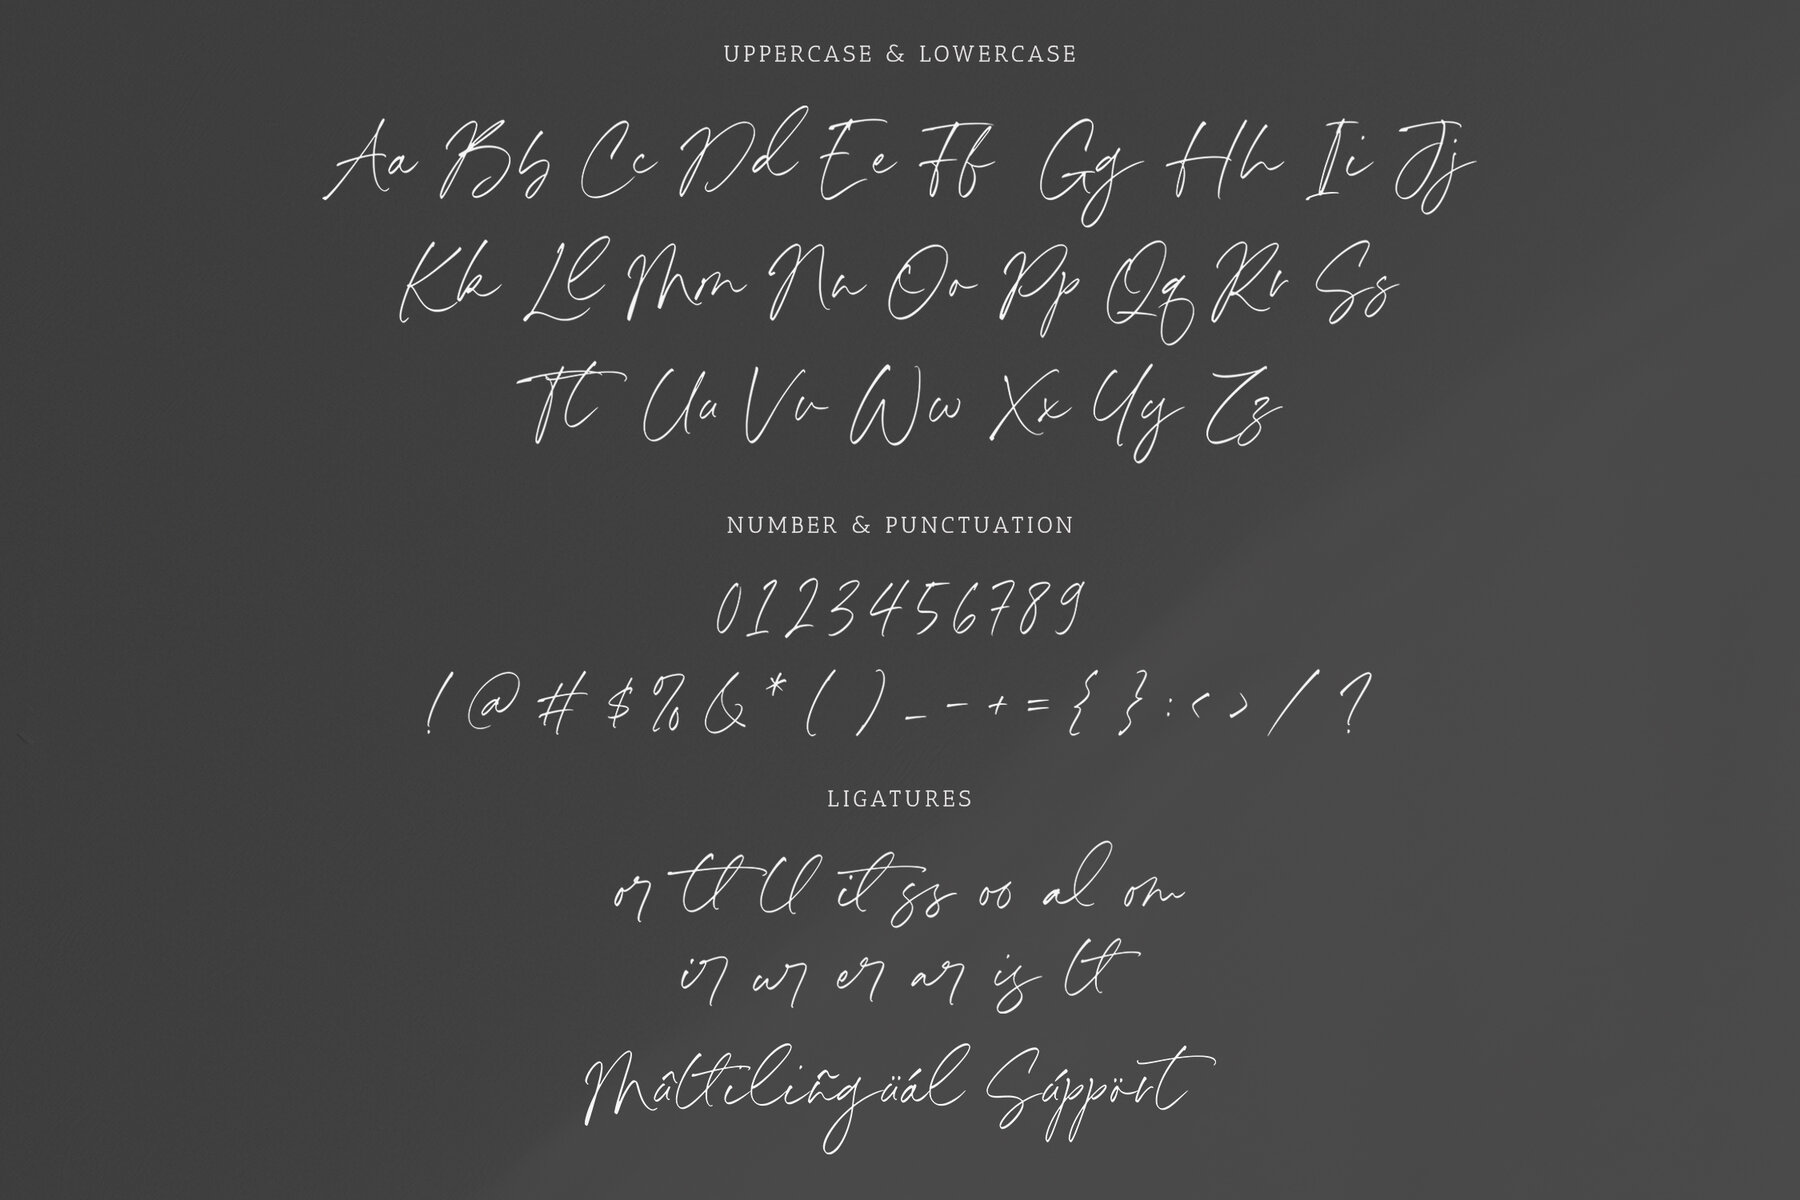 UPPERCASE & LOWERCASE
Aa Bb Cc Dd Ee Ff Gg Hh Ii Jj
Kk Ll Mm Nn Oo Pp Qq Rr Ss
Tt Uu Vv Ww Xx Yy Zz
NUMBER & PUNCTUATION
0123456789
! @ # $ % & * ( ) _ - + = { } : < > / ?
LIGATURES
or tt ll it ss oo al om
ir ur er ar is lt
Mûltiliñgüál Súppört